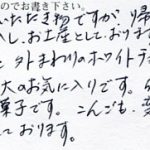 のでお書き下さい。
いただき物ですが、帰
入し、お土産としております
と外まわりのホワイトラ
大のお気に入りです。
菓子です。こんごも、
しております。